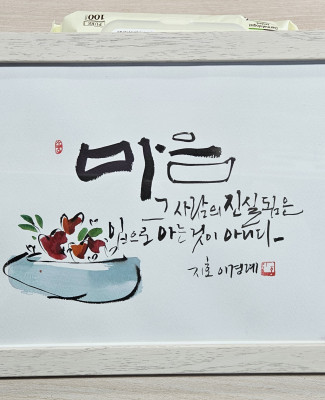 마음
그 사람의 진실됨은
입으로 아는 것이 아니다
지호 이경례
100